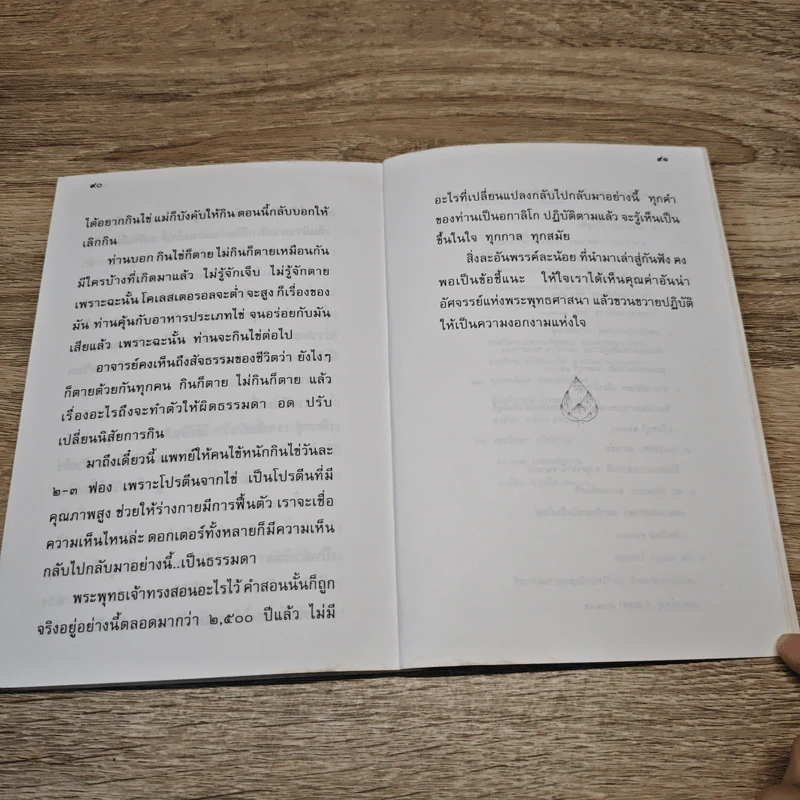 ๙๐
ได้อยากกินไข่ แม่ก็บังคับให้กิน ตอนนี้กลับบอกให้
เลิกกิน
ท่านบอก กินไข่ก็ตาย ไม่กินก็ตายเหมือนกัน
มีใครบ้างที่เกิดมาแล้ว ไม่รู้จักเจ็บ ไม่รู้จักตาย
เพราะฉะนั้น โคเลสเตอรอลจะต่ำ จะสูง ก็เรื่องของ
มัน ท่านคุ้นกับอาหารประเภทไข่ จนอร่อยกับมัน
เสียแล้ว เพราะฉะนั้น ท่านจะกินไข่ต่อไป
อาจารย์คงเห็นถึงสัจธรรมของชีวิตว่า ยังไงๆ
ก็ตายด้วยกันทุกคน กินก็ตาย ไม่กินก็ตาย แล้ว
เรื่องอะไรถึงจะทำตัวให้ผิดธรรมดา อด ปรับ
เปลี่ยนนิสัยการกิน
มาถึงเดี๋ยวนี้ แพทย์ให้คนไข้หนักกินไข่วันละ
๒-๓ ฟอง เพราะโปรตีนจากไข่ เป็นโปรตีนที่มี
คุณภาพสูง ช่วยให้ร่างกายมีการฟื้นตัว เราจะเชื่อ
ความเห็นไหนล่ะ ดอกเตอร์ทั้งหลายก็มีความเห็น
กลับไปกลับมาอย่างนี้..เป็นธรรมดา
พระพุทธเจ้าทรงสอนอะไรไว้ คำสอนนั้นก็ถูก
จริงอยู่อย่างนี้ตลอดมากว่า ๒,๕๐๐ ปีแล้ว ไม่มี
๙๑
อะไรที่เปลี่ยนแปลงกลับไปกลับมาอย่างนี้ ทุกคำ
ของท่านเป็นอกาลิโก ปฏิบัติตามแล้ว จะรู้เห็นเป็น
ขึ้นในใจ ทุกกาล ทุกสมัย
สิ่งละอันพรรค์ละน้อย ที่นำมาเล่าสู่กันฟัง คง
พอเป็นข้อชี้แนะ ให้ใจเราได้เห็นคุณค่าอันน่า
อัศจรรย์แห่งพระพุทธศาสนา แล้วชวนขวายปฏิบัติ
ให้เป็นความงอกงามแห่งใจ